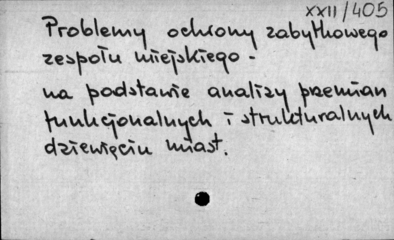 XXII/405
Problemy ochrony zabytkowego
zespołu miejskiego -
na podstawie analizy przemian
funkcjonalnych i strukturalnych
dziewięciu miast.